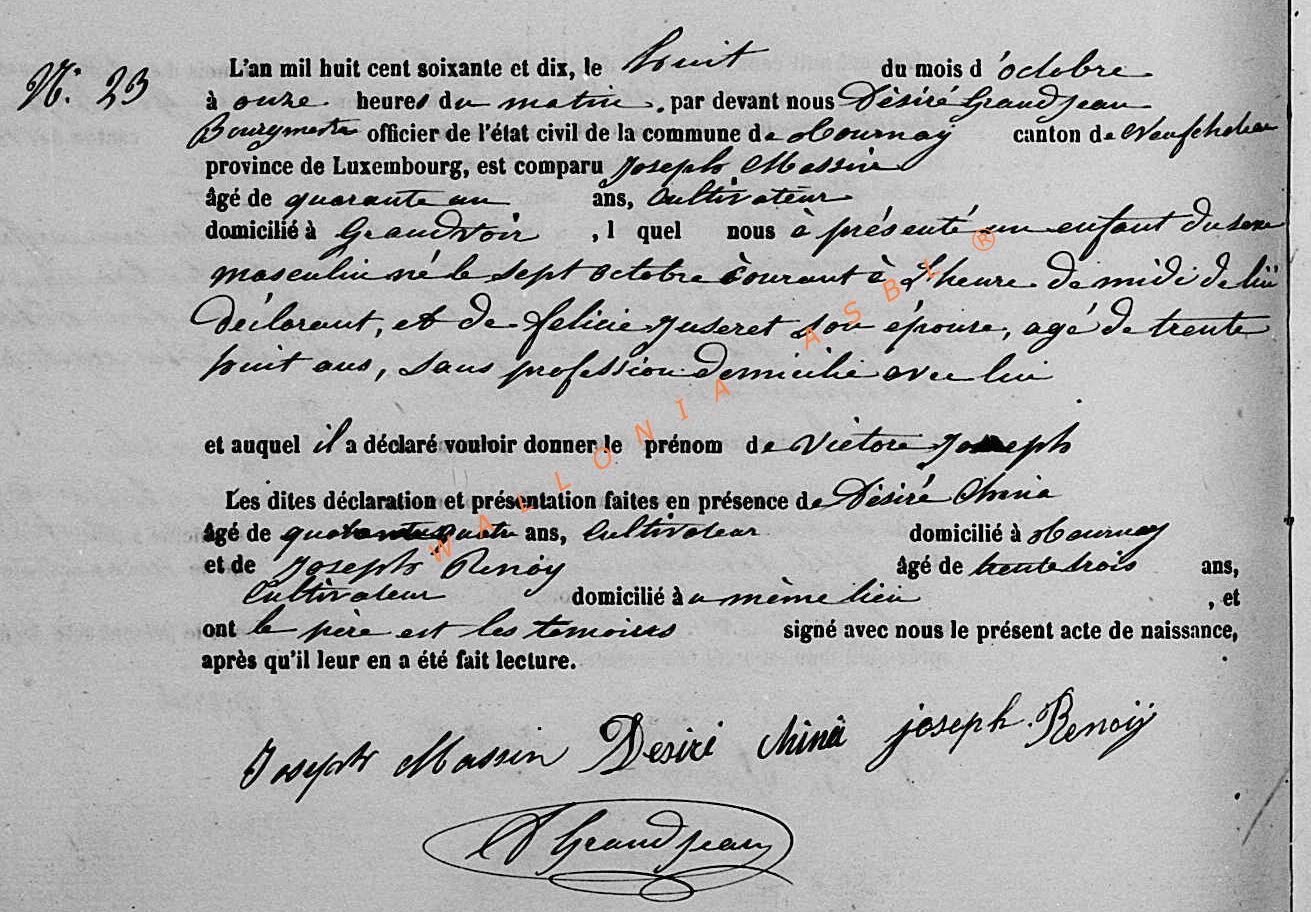 N: 23
L'an mil huit cent soixante et dix, le huit du mois d'octobre
à onze heures du matin, par devant nous Dèsiré Grandjean
Bourgmestre officier de l'état civil de la commune de Tournay canton de Neufchateau
province de Luxembourg, est comparu Joseph Massin
âgé de quarante un ans, Cultivateur
domicilié à Grandvoir, l quel nous à présenté un enfant du sexe
masculin né le sept octobre courant à L'heure de midi de lui
Déclarant, et de felicie Juseret son épouse, agé de trente
huit ans, sans profession domicilié avec lui
et auquel il a déclaré vouloir donner le prénom de Victore Joseph
Les dites déclaration et présentation faites en présence de Dèsiré China
âgé de quarante quatre ans, Cultivateur domicilié à Tournay
et de Joseph Renoÿ âgé de trente trois ans,
Cultivateur domicilié à u même lieu, et
ont le père est les temoins signé avec nous le présent acte de naissance,
après qu'il leur en a été fait lecture.
Joseph Massin Desiré chinâ joseph Renoÿ
D Grandjean
WALLONIA ASBL ®